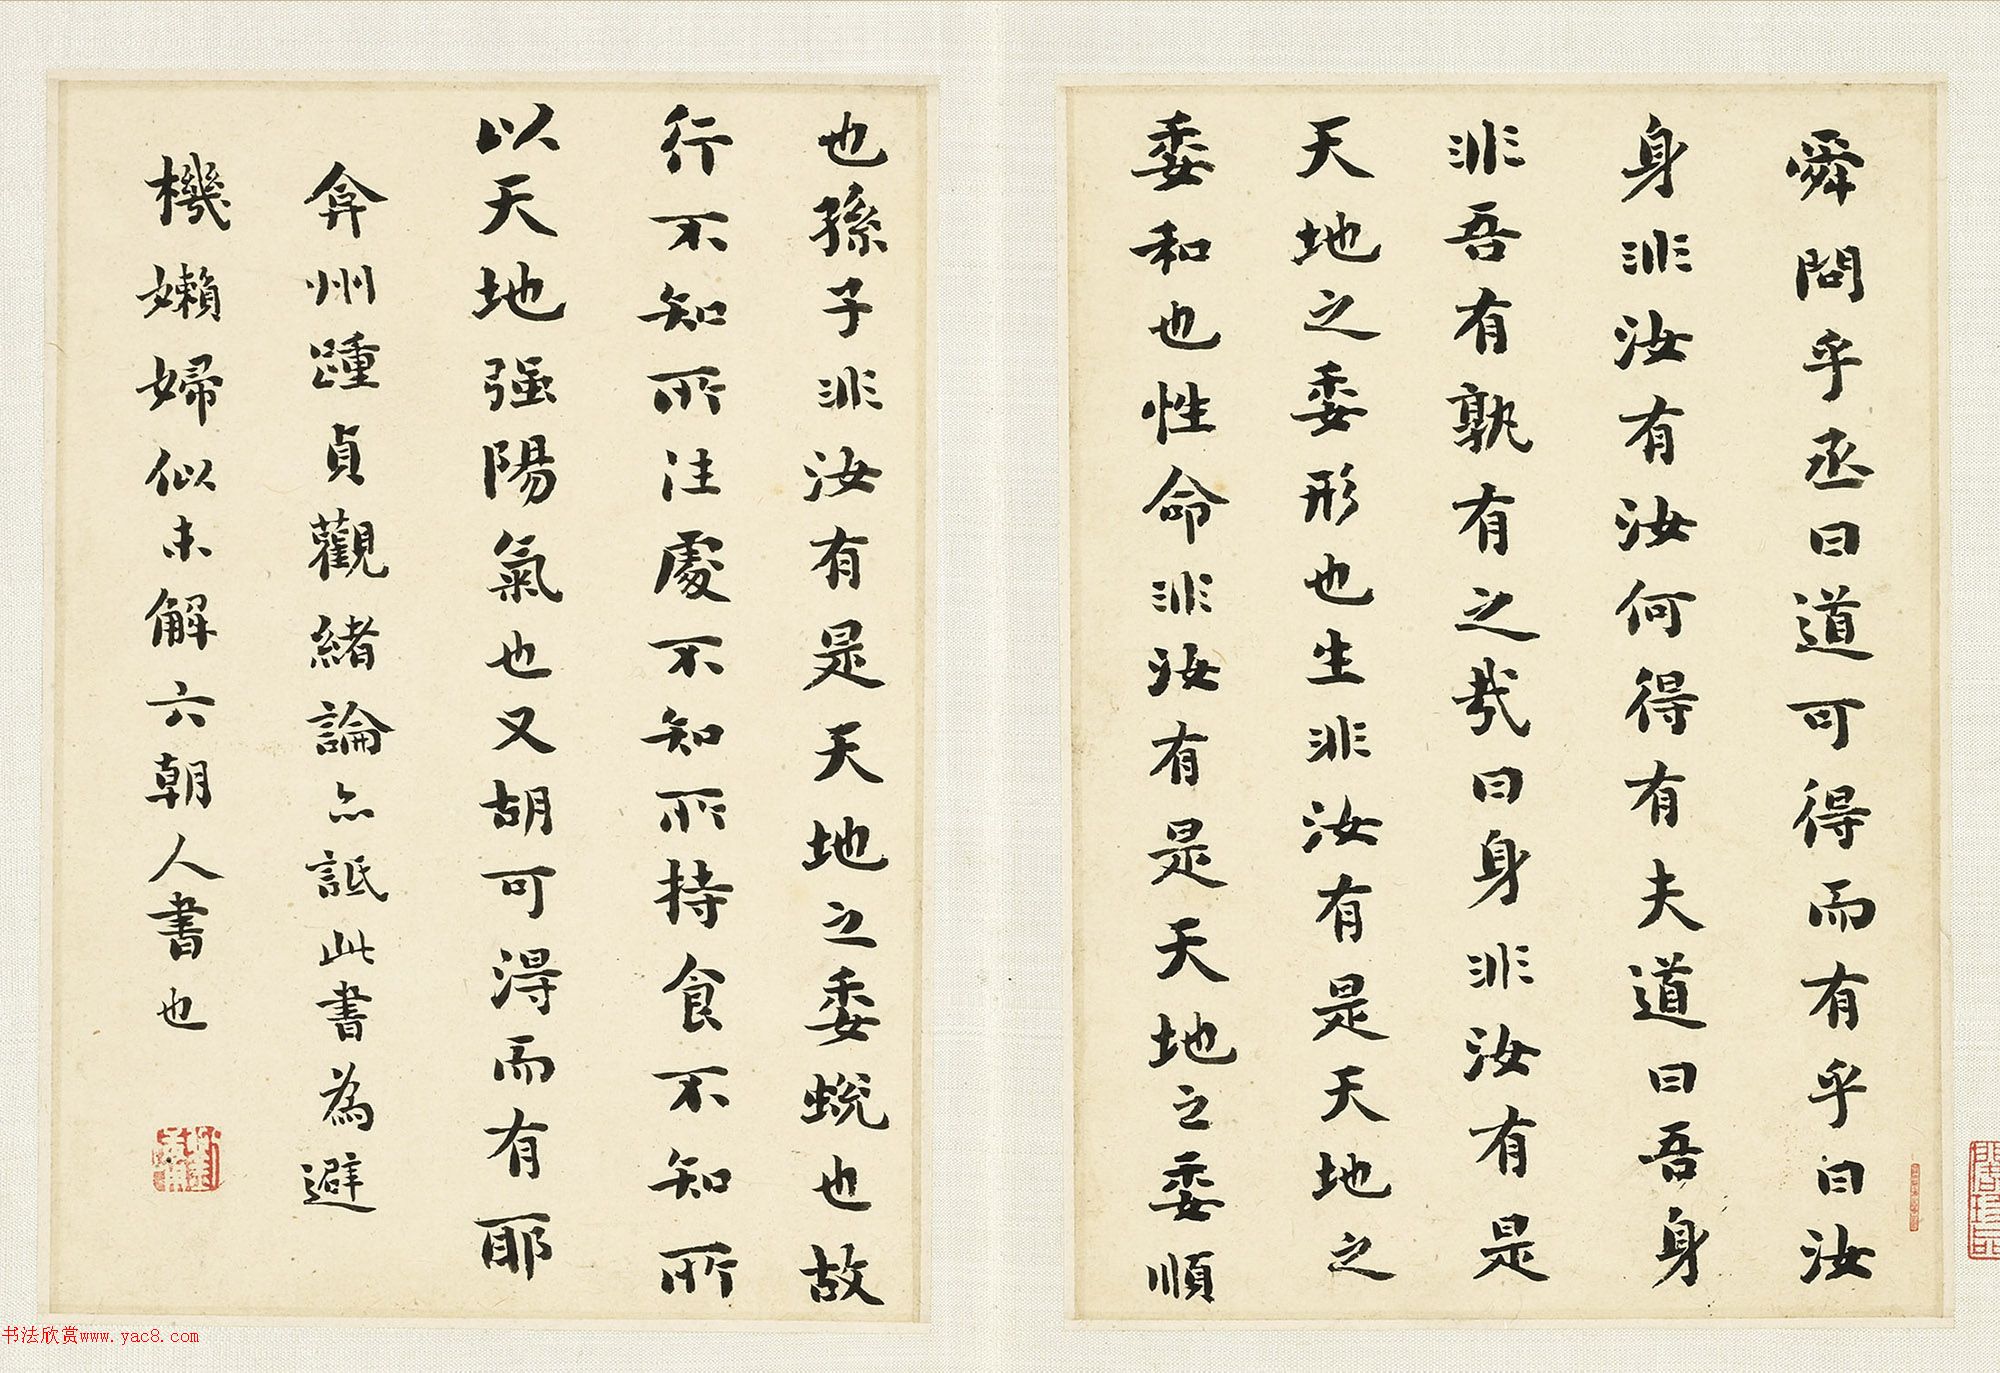 舜問乎丞曰道可得而有乎曰汝
身非汝有汝何得有夫道曰吾身
非吾有孰有之哉曰身非汝有是
天地之委形也生非汝有是天地之
委和也性命非汝有是天地之委順
也孫子非汝有是天地之委蛻也故
行不知所往處不知所持食不知所
以天地强陽氣也又胡可得而有耶
弇州踵貞觀緒論亦詆此書為避
機嬾婦似未解六朝人書也
书法欣赏www.yac8.com